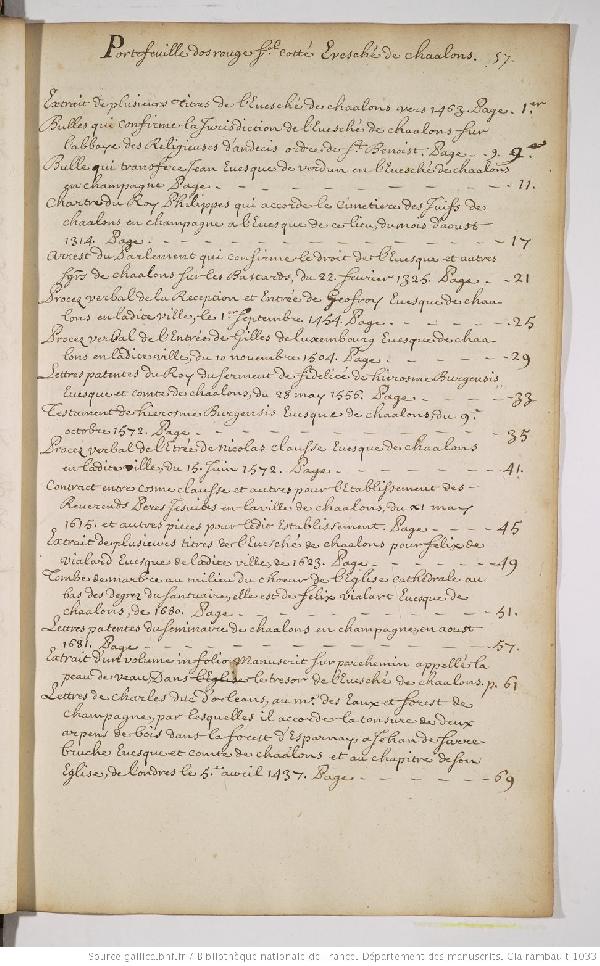 Portefeuille dos rouge fil. cotté Evesché de chaalons. 57.
Extrait de plusieurs titres de l'Euesché de chaalons vers 1463. Page. 1.er
Bulles qui confirme la Jurisdiction de l'Euesché de chaalons sur
l'abbaye des Religieuses d'andecis ordre de St. Benoist. Page - 9.
Bulle qui transfere Jean Euesque de verdun en l'Euesché de chaalons
en champagne Page - - - - - - - - - 11.
Chartre du Roy Philippes qui accorde le Cimetiere des Juifs de
chaalons en champagne a l'Euesque de ce lieu, du mois d'aoust
1314. Page. - - - - - - - - - 17
Arrest du Parlement qui confirme le droit de l'Euesque et autres
sgrs. de chaalons sur les Bastards, du 22. fevrier 1325. Page - - 21
Procez verbal de la Reception et Entrée de Geofroy Euesque de chaa-
lons en ladite ville, le 1er septembre 1454. Page - - - - - 25
Procez verbal de l'Entrée de Gilles de Luxembourg Euesque de chaa-
lons en ladite ville, du 10 novembre 1504. Page - - - - - 29
Lettres patentes du Roy du serment de fidelité de hierosme Burgensis
Euesque et comte de chaalons, du 28 may 1556. Page - - - - 33
Testament de hierosme Burgensis Euesque de chaalons, du 9.
octobre 1572. Page - - - - - - - - - 35
Procez verbal de l'Etrée de Nicolas clausse Euesque de chaalons
en ladite ville, du 15. Juin 1572. Page - - - - - - 41.
Contract entre cosme clausse et autres pour l'Etablissement des
Reverends Peres Jesuites en la ville de chaalons, du XI may
1615. et autres pieces pour ledit Establissement. Page - - - - 45
Extrait de plusieurs titres de l'Euesché de chaalons pour felix de
vialard Euesque de ladite ville, de 1623. Page - - - - - 49
Tombe de marbre au milieu du choeur de l'Eglise cathedrale au
bas des degrez du sanctuaire, elle est de felix vialart Euesque de
chaalons, de 1680. Page - - - - - - - - 51.
Lettres patentes du seminaire de chaalons en champagne, en aoust
1681. Page - - - - - - - - - 57.
Extrait d'un volume in folio Manuscrit sur parchemin appellé la
peau de veau, Dans l'Eglise le tresor de l'Euesché de chaalons. p. 61
Lettres de charles duc d'orleans, au me. des Eaux et forest de
champagne, par lesquelles il accorde la tonsure de deux
arpens de bois dans la forest d'Esparnay, a Jehan de sarre
bruche Euesque et comte de chaalons et au chapitre de son
Eglise, de londres le 5. avril 1437. Page - - - - - - 69
Source gallica.bnf.fr / Bibliothèque nationale de France. Département des manuscrits. Clairambault 1033